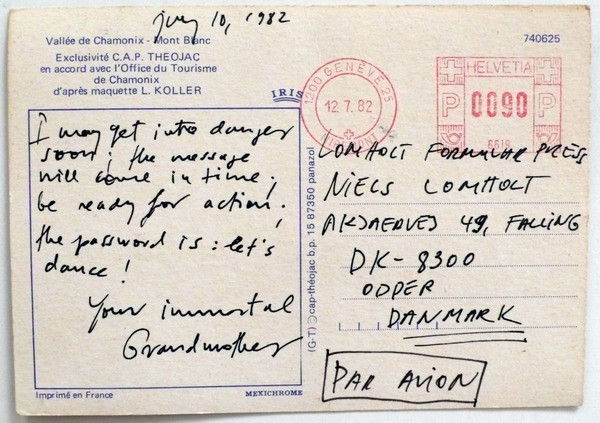 July 10, 1982
Vallée de Chamonix - Mont Blanc
Exclusivité C.A.P. THEOJAC
en accord avec l'Office du Tourisme
de Chamonix
d'après maquette L. KOLLER
IRIS
740625
1200 GENÈVE 25
12.7.82
HELVETIA
P 0090 P
6619
I may get into danger
soon; the message
will come in time;
be ready for action!
the password is: let's
dance!
Your immortal
Grandmother
(G-T) cap-théojac b.p. 15 87350 panazol
LOMHOLT FORMULAR PRESS
NIELS LOMHOLT
AKJAERVEJ 49, FALLING
DK-8300
ODDER
DANMARK
PAR AVION
Imprimé en France
MEXICHROME